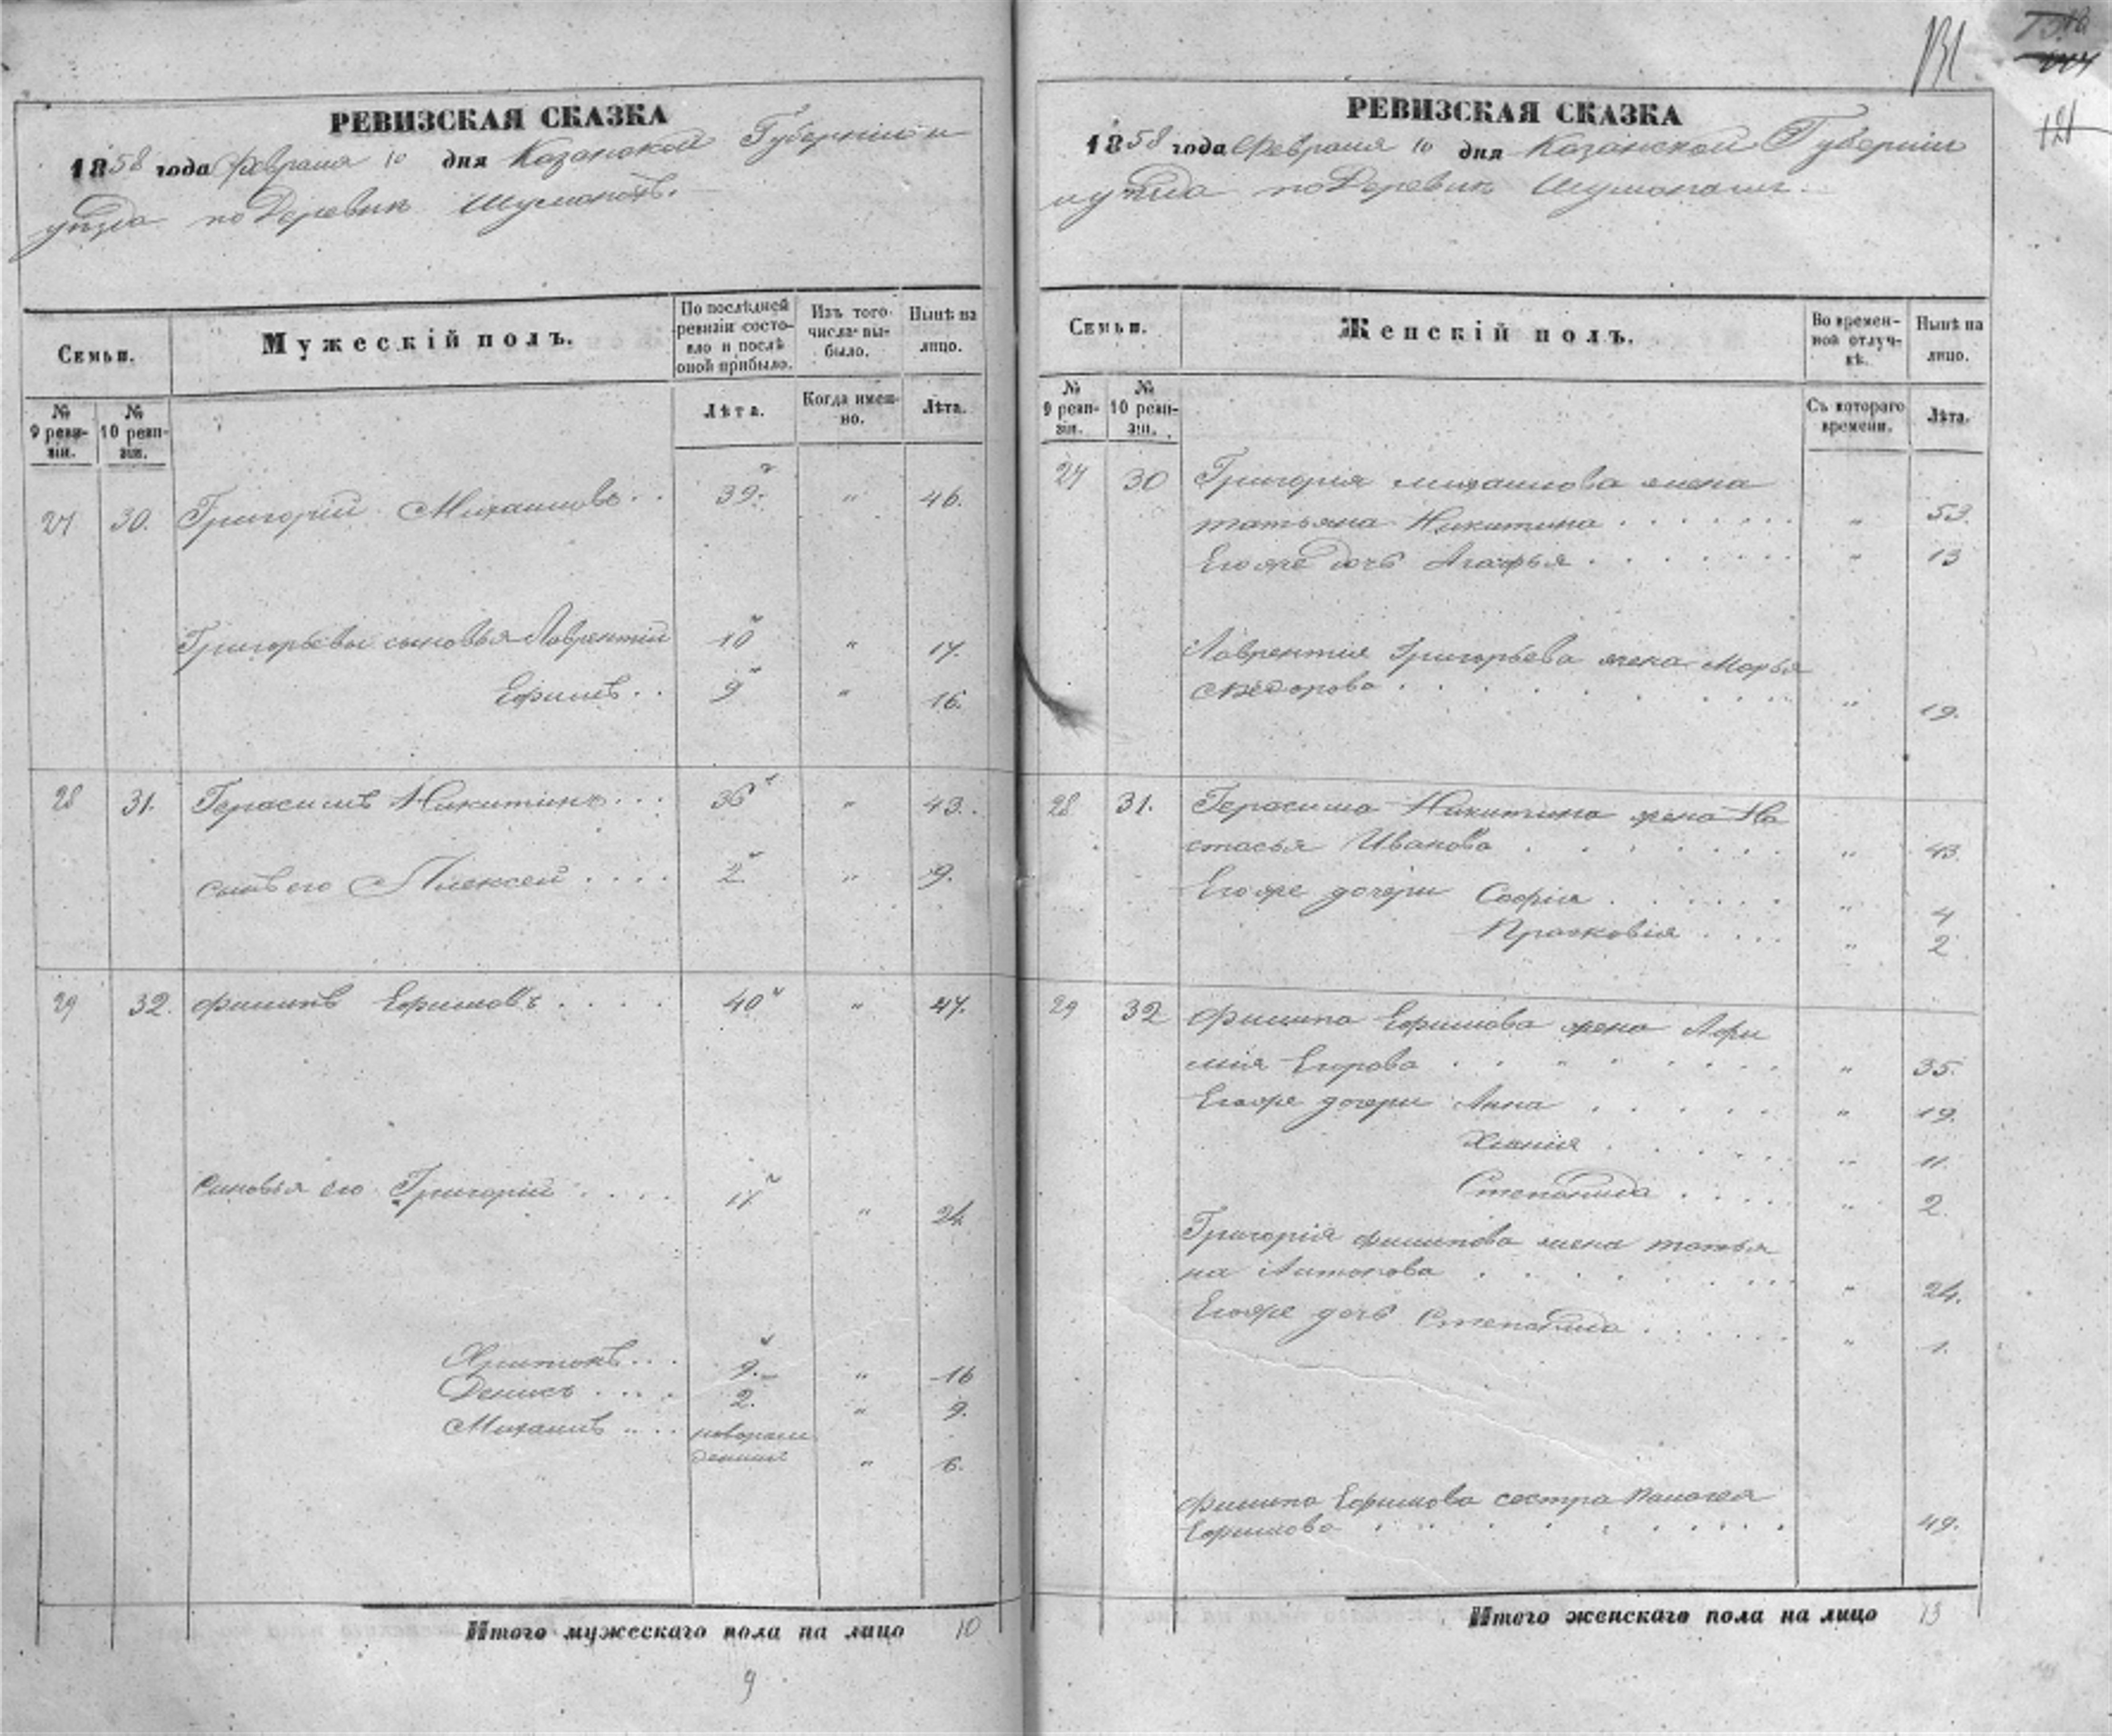 РЕВИЗСКАЯ СКАЗКА
1858 года Февраля 10 дня Казанской Губернiи и
уѣзда по Деревнѣ
Семьи.
Мужескiй полъ.
По послѣдней ревизiи состояло и послѣ оной прибыло.
Изъ того числа выбыло.
Нынѣ на лицо.
№ 9 ревизiи.
№ 10 ревизiи.
Лѣта.
Когда именно.
Лѣта.
27 30. Григорiй Михаиловъ . . 39. " 46.
Григорьевы сыновья Лаврентiй 10 " 17.
Ефимъ . . 9 " 16.
28 31. Герасимъ Никитинъ . . . 36 " 43.
сынъ его Алексей . . . . 2 " 9.
29 32. Филипъ Ефимовъ . . . . 40 " 47.
сыновья его Григорiй . . . . 17 " 24.
Харитонъ . . . 9. " 16
Денисъ . . . . 2. " 9.
Михаилъ . . . новорож
денный " 6.
Итого мужескаго пола на лицо 10
9
131
121
РЕВИЗСКАЯ СКАЗКА
1858 года Февраля 10 дня Казанской Губернiи
и уѣзда по Деревнѣ
Семьи.
Женскiй полъ.
Во временной отлучкѣ.
Нынѣ на лицо.
№ 9 ревизiи.
№ 10 ревизiи.
Съ котораго времени.
Лѣта.
27 30 Григорiя михаилова жена
татьяна Никитина . . . . . . " 53.
Ея же дочь Агафья . . . . . . " 13
Лаврентiя Григорьева жена Марья
Ѳедорова . . . . . . . " 19.
28 31. Герасима Никитина жена На
стасья Иванова . . . . . . " 43.
Ея же дочери Софiя . . . . . " 4
Прасковiя . . . . " 2
29 32 Филипа Ефимова жена Афи
мiя Егорова . . . . . . . . " 35.
Ея же дочери Анна . . . . . " 19.
Ксенiя . . . . . " 11
Степанида . . . . " 2.
Григорiя филипова жена татья
на Антонова . . . . . . . . " 24.
Ея же дочь Степанида . . . . . . " 1.
Филипа Ефимова сестра Палагея
Ефимова . . . . . . . . . 49.
Итого женскаго пола на лицо 13